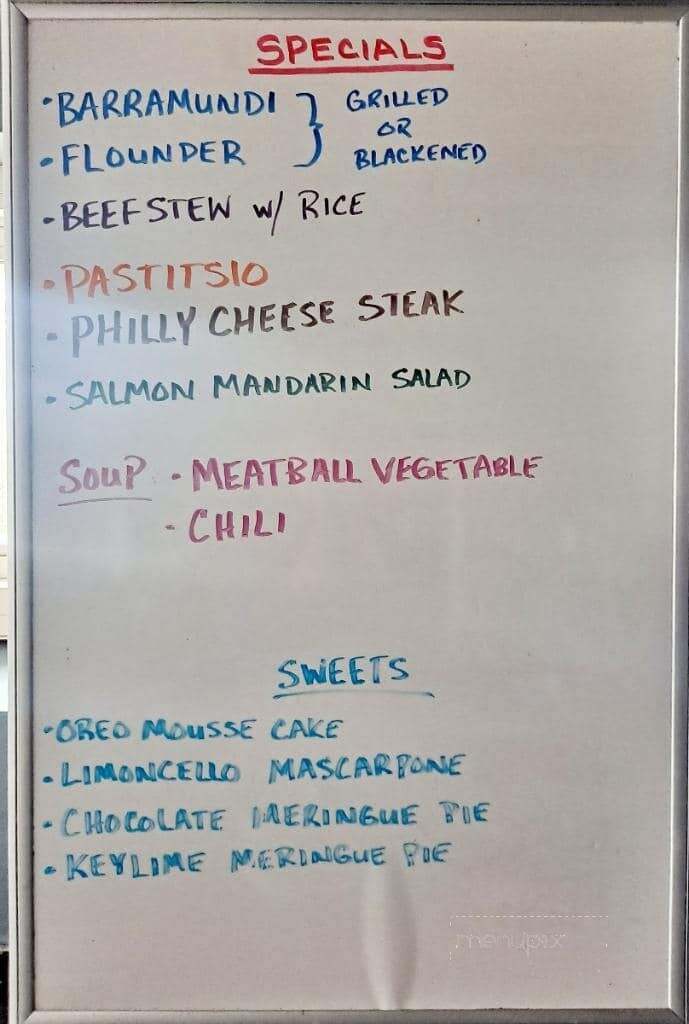 SPECIALS
• BARRAMUNDI } GRILLED
OR
• FLOUNDER BLACKENED
• BEEF STEW w/ RICE
• PASTITSIO
• PHILLY CHEESE STEAK
• SALMON MANDARIN SALAD
SOUP • MEATBALL VEGETABLE
• CHILI
SWEETS
• OREO MOUSSE CAKE
• LIMONCELLO MASCARPONE
• CHOCOLATE MERINGUE PIE
• KEYLIME MERINGUE PIE
menupix